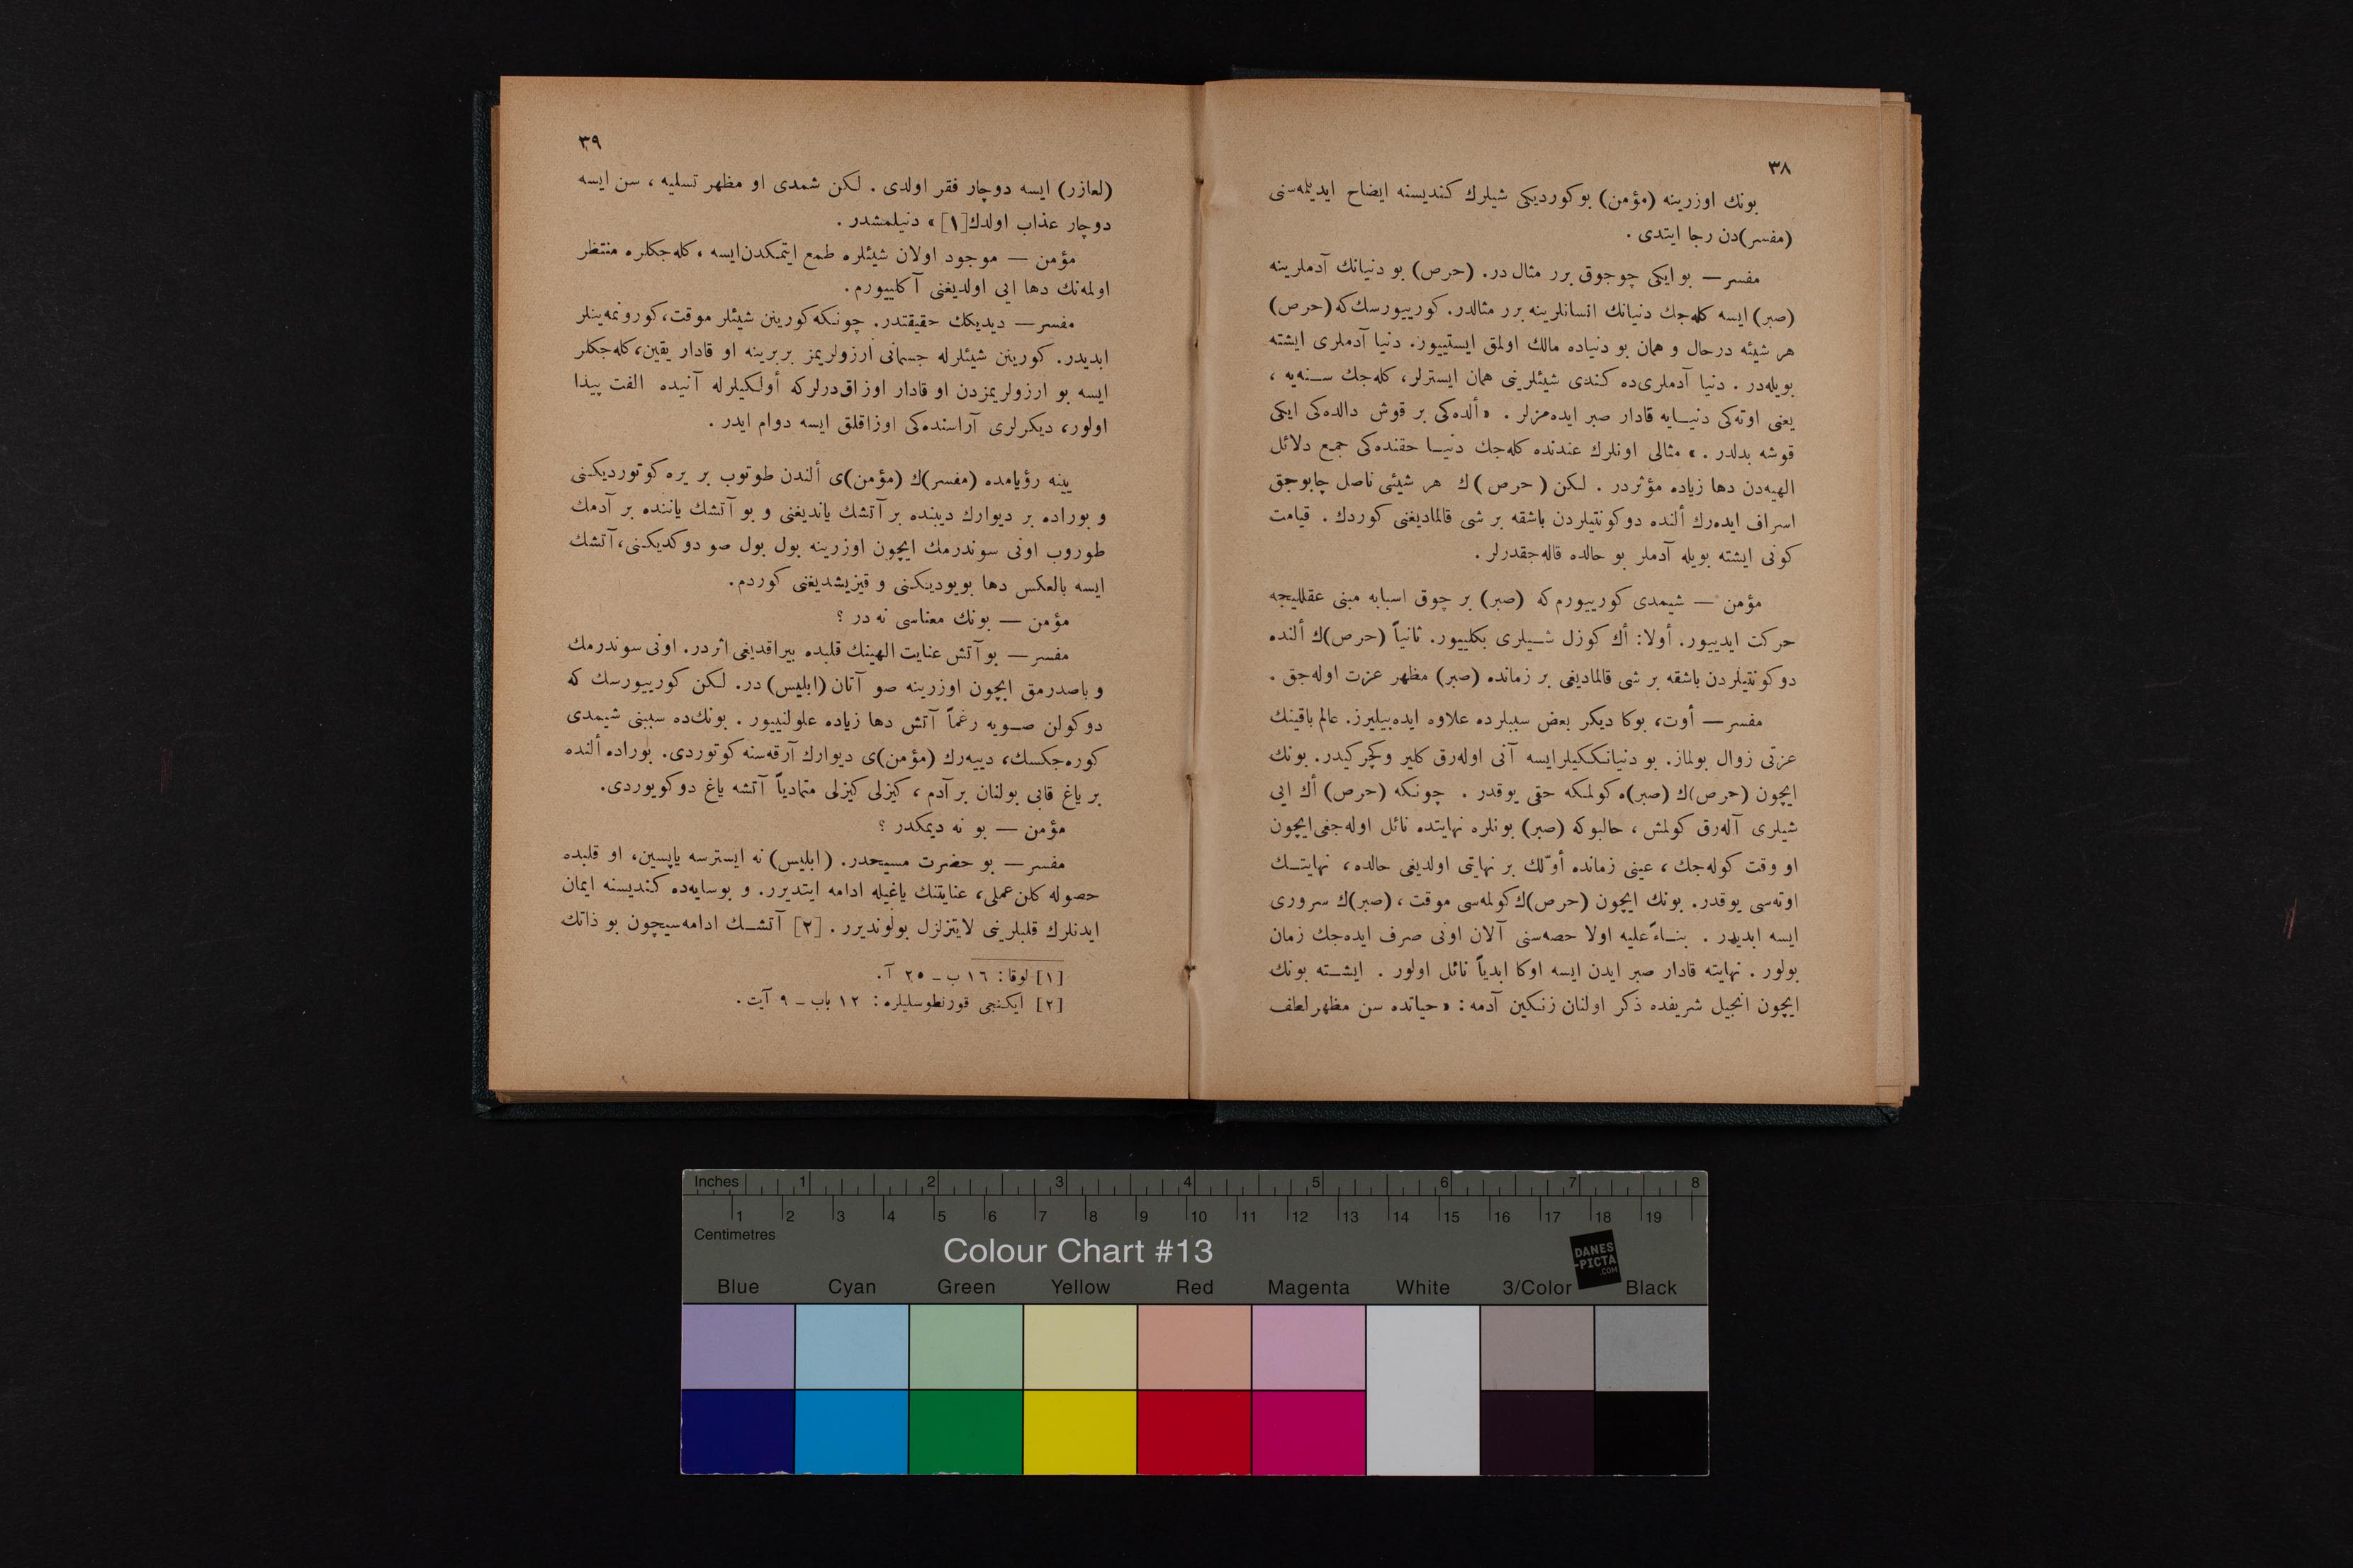 ٣٨
بونك اوزرينه (مؤمن) بو كورديكى شيلرك كنديسنه ايضاح ايديلمه‌سنى
(مفسر)دن رجا ايتدى .
مفسر — بو ايكى چوجوق برر مثال در. (حرص) بو دنيانك آدملرينه
(صبر) ايسه كله‌جك دنيانك انسانلرينه برر مثالدر. كورييورسك‌كه (حرص)
هر شيئه درحال و همان بو دنياده مالك اولمق ايستييور. دنيا آدملرى ايشته
بويله‌در . دنيا آدملرى‌ده كندى شيئلرينى همان ايسترلر، كله‌جك سنه‌يه ،
يعنى اوته‌كى دنيايه قادار صبر ايده‌مزلر . «ألده‌كى بر قوش دالده‌كى ايكى
قوشه بدلدر . » مثالى اونلرك عندنده كله‌جك دنيا حقنده‌كى جمع دلائل
الهيه‌دن دها زياده مؤثردر . لكن (حرص)ك هر شيئى ناصل چابوجق
اسراف ايده‌رك ألنده دوكونتيلردن باشقه بر شى قالماديغنى كوردك . قيامت
كونى ايشته بويله آدملر بو حالده قاله‌جقدرلر .
مؤمن — شيمدى كورييورم‌كه (صبر) بر چوق اسبابه مبنى عقلليجه
حركت ايدييور. أولا: أك كوزل شيلرى بكلييور. ثانياً (حرص)ك ألنده
دوكونتيلردن باشقه بر شى قالماديغى بر زمانده (صبر) مظهر عزت اوله‌جق .
مفسر — أوت، بوكا ديكر بعض سببلرده علاوه ايده‌بيليرز. عالم باقينك
عزتى زوال بولماز. بو دنيانككيلر ايسه آنى اوله‌رق كلير وكچر كيدر. بونك
ايچون (حرص)ك (صبر)ه كولمكه حقى يوقدر . چونكه (حرص) أك ايى
شيلرى آله‌رق كولمش ، حالبوكه (صبر) بونلره نهايتده نائل اوله‌جغى ايچون
او وقت كوله‌جك ، عينى زمانده أوّلك بر نهايتى اولديغى حالده، نهايتك
اوته‌سى يوقدر. بونك ايچون (حرص)ك كولمه‌سى موقت ، (صبر)ك سرورى
ايسه ابديدر . بناءً عليه اولا حصه‌سنى آلان اونى صرف ايده‌جك زمان
بولور . نهايته قادار صبر ايدن ايسه اوكا ابدياً نائل اولور . ايشته بونك
ايچون انجيل شريفده ذكر اولنان زنكين آدمه : «حياتده سن مظهر لطف
٣٩
(لعازر) ايسه دوچار فقر اولدى . لكن شمدى او مظهر تسليه ، سن ايسه
دوچار عذاب اولدك[١]» دنيلمشدر .
مؤمن — موجود اولان شيئلره طمع ايتمكدن ايسه ، كله‌جكلره منتظر
اولمه‌نك دها ايى اولديغنى آكلييورم.
مفسر — ديديكك حقيقتدر. چونكه كورينن شيئلر موقت، كورونمه‌ينلر
ابديدر. كورينن شيئلرله جسمانى ارزولريمز بربرينه او قادار يقين، كله‌جكلر
ايسه بو ارزولريمزدن او قادار اوزاق‌درلركه أولكيلرله آنيده الفت پيدا
اولور، ديكرلرى آراسنده‌كى اوزاقلق ايسه دوام ايدر .
يينه رؤيامده (مفسر)ك (مؤمن)ى ألندن طوتوب بر يره كوتورديكنى
و بوراده بر ديوارك ديبنده بر آتشك يانديغنى و بو آتشك ياننده بر آدمك
طوروب اونى سوندرمك ايچون اوزرينه بول بول صو دوكديكنى، آتشك
ايسه بالعكس دها بويوديكنى و قيزيشديغنى كوردم.
مؤمن — بونك معناسى نه در ؟
مفسر — بو آتش عنايت الهينك قلبده بيراقديغى اثردر. اونى سوندرمك
و باصدرمق ايچون اوزرينه صو آتان (ابليس) در. لكن كورييورسك كه
دوكولن صويه رغماً آتش دها زياده علولنييور . بونك‌ده سببنى شيمدى
كوره‌جكسك، دييه‌رك (مؤمن)ى ديوارك آرقه‌سنه كوتوردى. بوراده ألنده
بر ياغ قابى بولنان بر آدم ، كيزلى كيزلى متمادياً آتشه ياغ دوكويوردى.
مؤمن — بو نه ديمكدر ؟
مفسر — بو حضرت مسيحدر. (ابليس) نه ايسترسه ياپسين، او قلبده
حصوله كلن عملى، عنايتنك ياغيله ادامه ايتديرر. و بوسايه‌ده كنديسنه ايمان
ايدنلرك قلبلرينى لايتزلزل بولونديرر. [٢] آتشك ادامه‌سيچون بو ذاتك
[١] لوقا : ١٦ ب ـ ٢٥ آ.
[٢] ايكنجى قورنطوسليلره : ١٢ باب ـ ٩ آيت .
Inches 1 2 3 4 5 6 7 8
1 2 3 4 5 6 7 8 9 10 11 12 13 14 15 16 17 18 19
Centimetres
Colour Chart #13
DANES
-PICTA
.COM
Blue Cyan Green Yellow Red Magenta White 3/Color Black